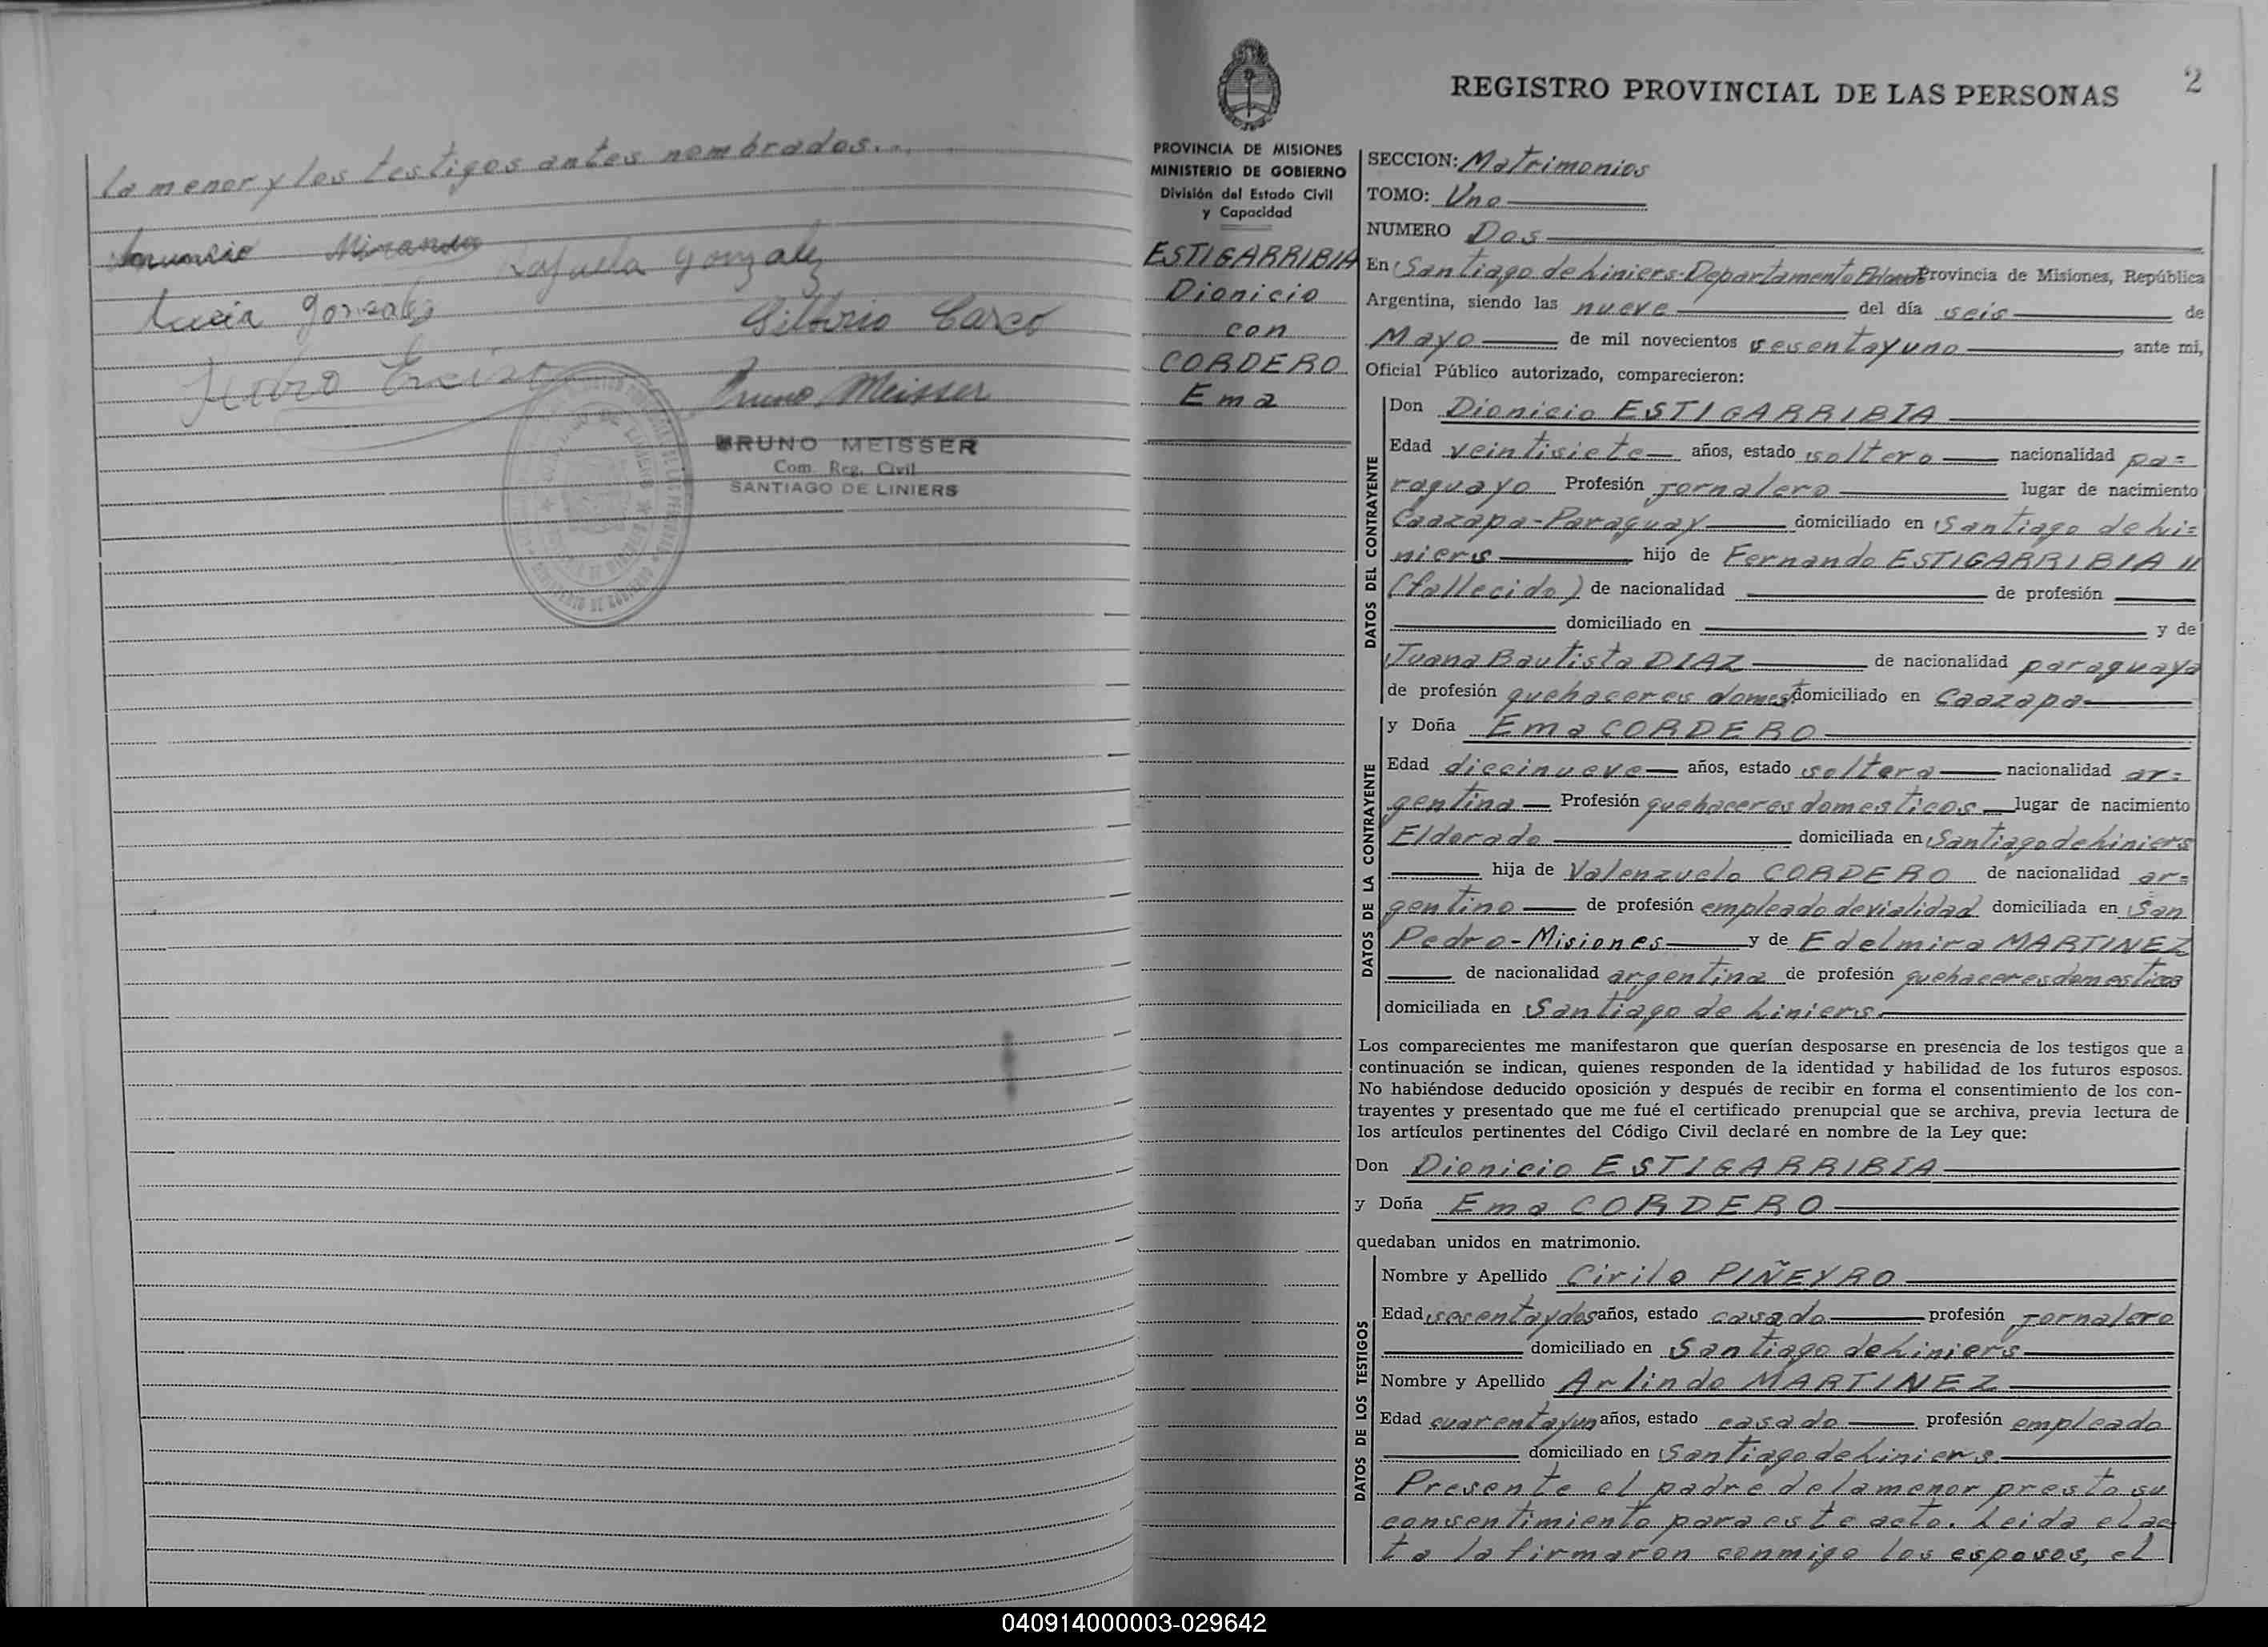 la menor y los testigos antes nombrados.-
Anuncio Miranda Rafaela Gonzalez
Lucia Gonzalez
Bruno Meisser
BRUNO MEISSER
Com. Reg. Civil
SANTIAGO DE LINIERS
2
REGISTRO PROVINCIAL DE LAS PERSONAS
PROVINCIA DE MISIONES
MINISTERIO DE GOBIERNO
División del Estado Civil
y Capacidad
ESTIGARRIBIA
Dionicio
con
CORDERO
Ema
SECCION: Matrimonios
TOMO: Uno
NUMERO Dos
En Santiago de Liniers-Departamento Provincia de Misiones, República
Argentina, siendo las nueve del día seis de
Mayo de mil novecientos sesentayuno, ante mi,
Oficial Público autorizado, comparecieron:
DATOS DEL CONTRAYENTE
Don Dionicio ESTIGARRIBIA
Edad veintisiete años, estado soltero nacionalidad pa=
raguayo Profesión jornalero lugar de nacimiento
Caazapa-Paraguay domiciliado en Santiago de Li=
niers hijo de Fernando ESTIGARRIBIA
(fallecido) de nacionalidad de profesión
domiciliado en y de
Juana Bautista DIAZ de nacionalidad paraguaya
de profesión quehaceres domest domiciliado en Caazapa
DATOS DE LA CONTRAYENTE
y Doña Ema CORDERO
Edad diecinueve años, estado soltera nacionalidad ar=
gentina Profesión quehaceres domesticos lugar de nacimiento
Eldorado domiciliada en Santiago de Liniers
hija de Valenzuelo CORDERO de nacionalidad ar=
gentino de profesión empleado de vialidad domiciliada en San
Pedro-Misiones y de Edelmira MARTINEZ
de nacionalidad argentina de profesión quehaceres domesticos
domiciliada en Santiago de Liniers.
Los comparecientes me manifestaron que querían desposarse en presencia de los testigos que a
continuación se indican, quienes responden de la identidad y habilidad de los futuros esposos.
No habiéndose deducido oposición y después de recibir en forma el consentimiento de los con-
trayentes y presentado que me fué el certificado prenupcial que se archiva, previa lectura de
los artículos pertinentes del Código Civil declaré en nombre de la Ley que:
Don Dionicio ESTIGARRIBIA
y Doña Ema CORDERO
quedaban unidos en matrimonio.
DATOS DE LOS TESTIGOS
Nombre y Apellido Cirilo PIÑEYRO
Edad sesentaydos años, estado casado profesión jornalero
domiciliado en Santiago de Liniers
Nombre y Apellido Arlindo MARTINEZ
Edad cuarentayun años, estado casado profesión empleado
domiciliado en Santiago de Liniers.
Presente el padre de la menor presto su
consentimiento para este acto. Leida el ac
ta la firmaron conmigo los esposos, el
040914000003-029642